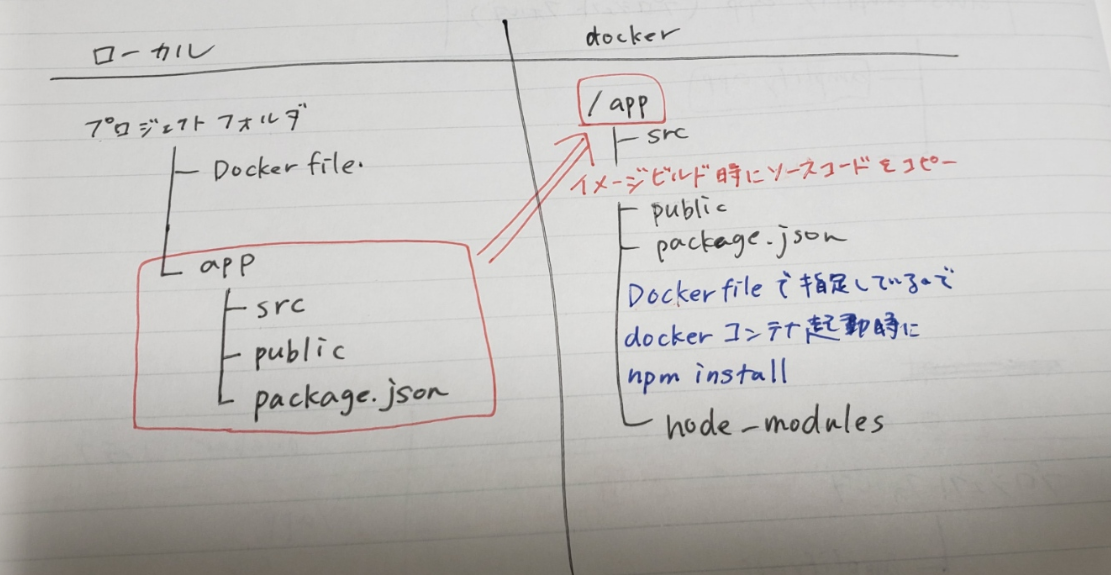 ローカル
docker
プロジェクトフォルダ
Dockerfile.
app
src
public
package.json
/app
src
イメージビルド時にソースコードをコピー
public
package.json
Dockerfileで指定しているので
dockerコンテナ起動時に
npm install
node_modules